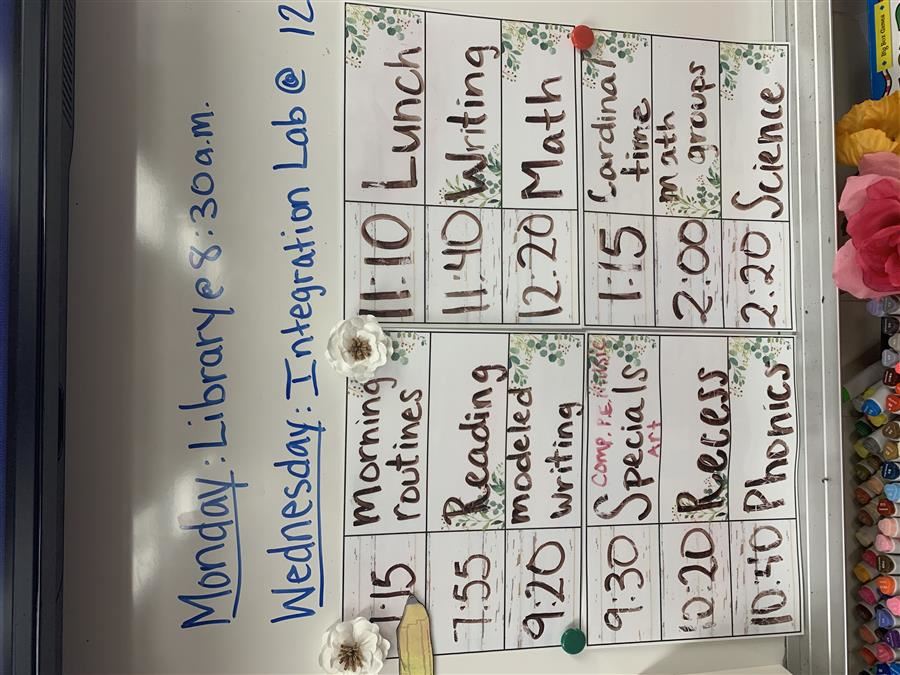 Monday: Library @ 8:30 a.m.
Wednesday: Integration Lab @ 12
:15 Morning routines
7:55 Reading
9:20 modeled writing
9:30 Comp, P.E, Music
Specials
Art
10:20 Recess
10:40 Phonics
11:10 Lunch
11:40 Writing
12:20 Math
1:15 Cardinal time
2:00 math groups
2:20 Science